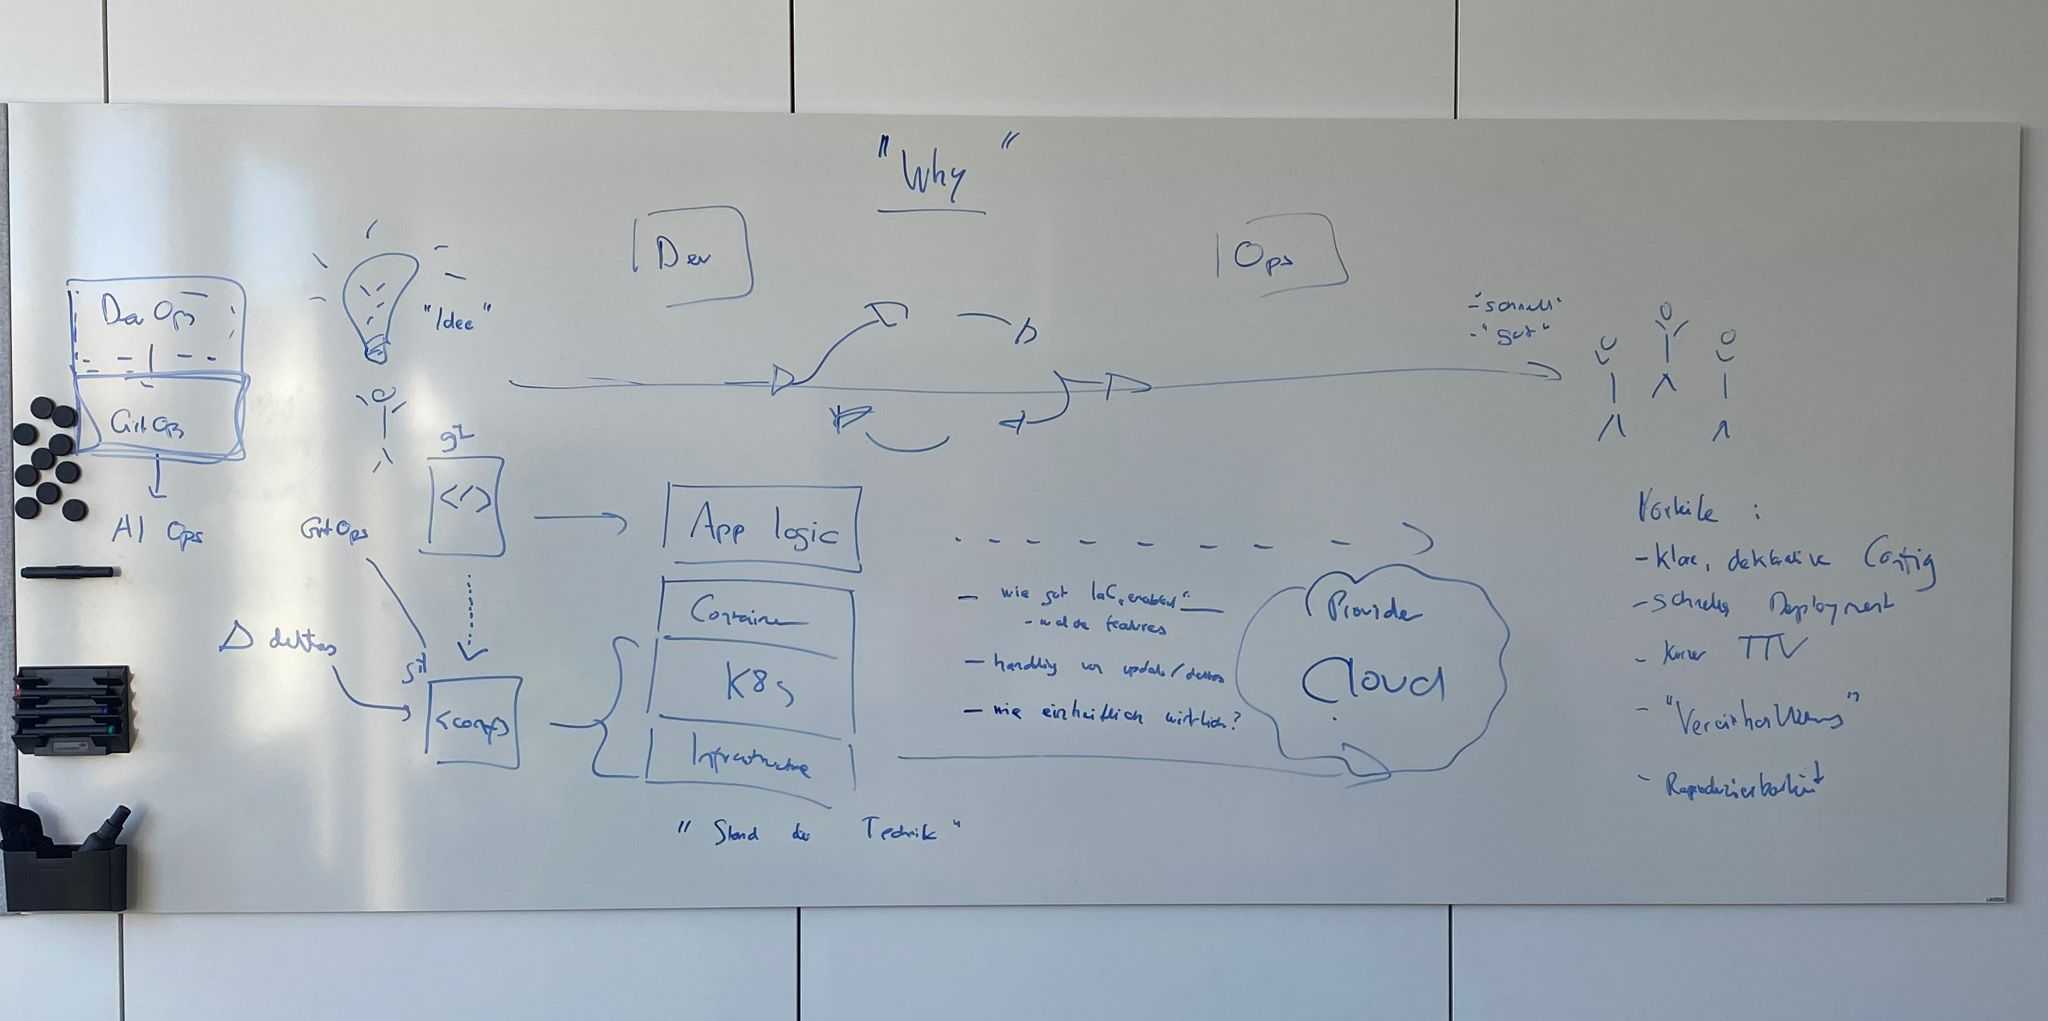 "Why"
Dev
Ops
Dev Ops
GitOps
AI Ops
"Idee"
- "schnell"
- "gut"
git
</>
GitOps
App logic
Δ deltas
git
<conf>
Container
K8s
Infrastructure
"Stand der Technik"
- wie gut IaC "enabled"
- welche features
- handling von updates/deltas
- wie einheitlich wirklich?
Provider
Cloud
Vorteile :
- klare, deklarative Config
- schnelles Deployment
- kurze TTV
- "Vereinheitlichung"
- Reproduzierbarkeit